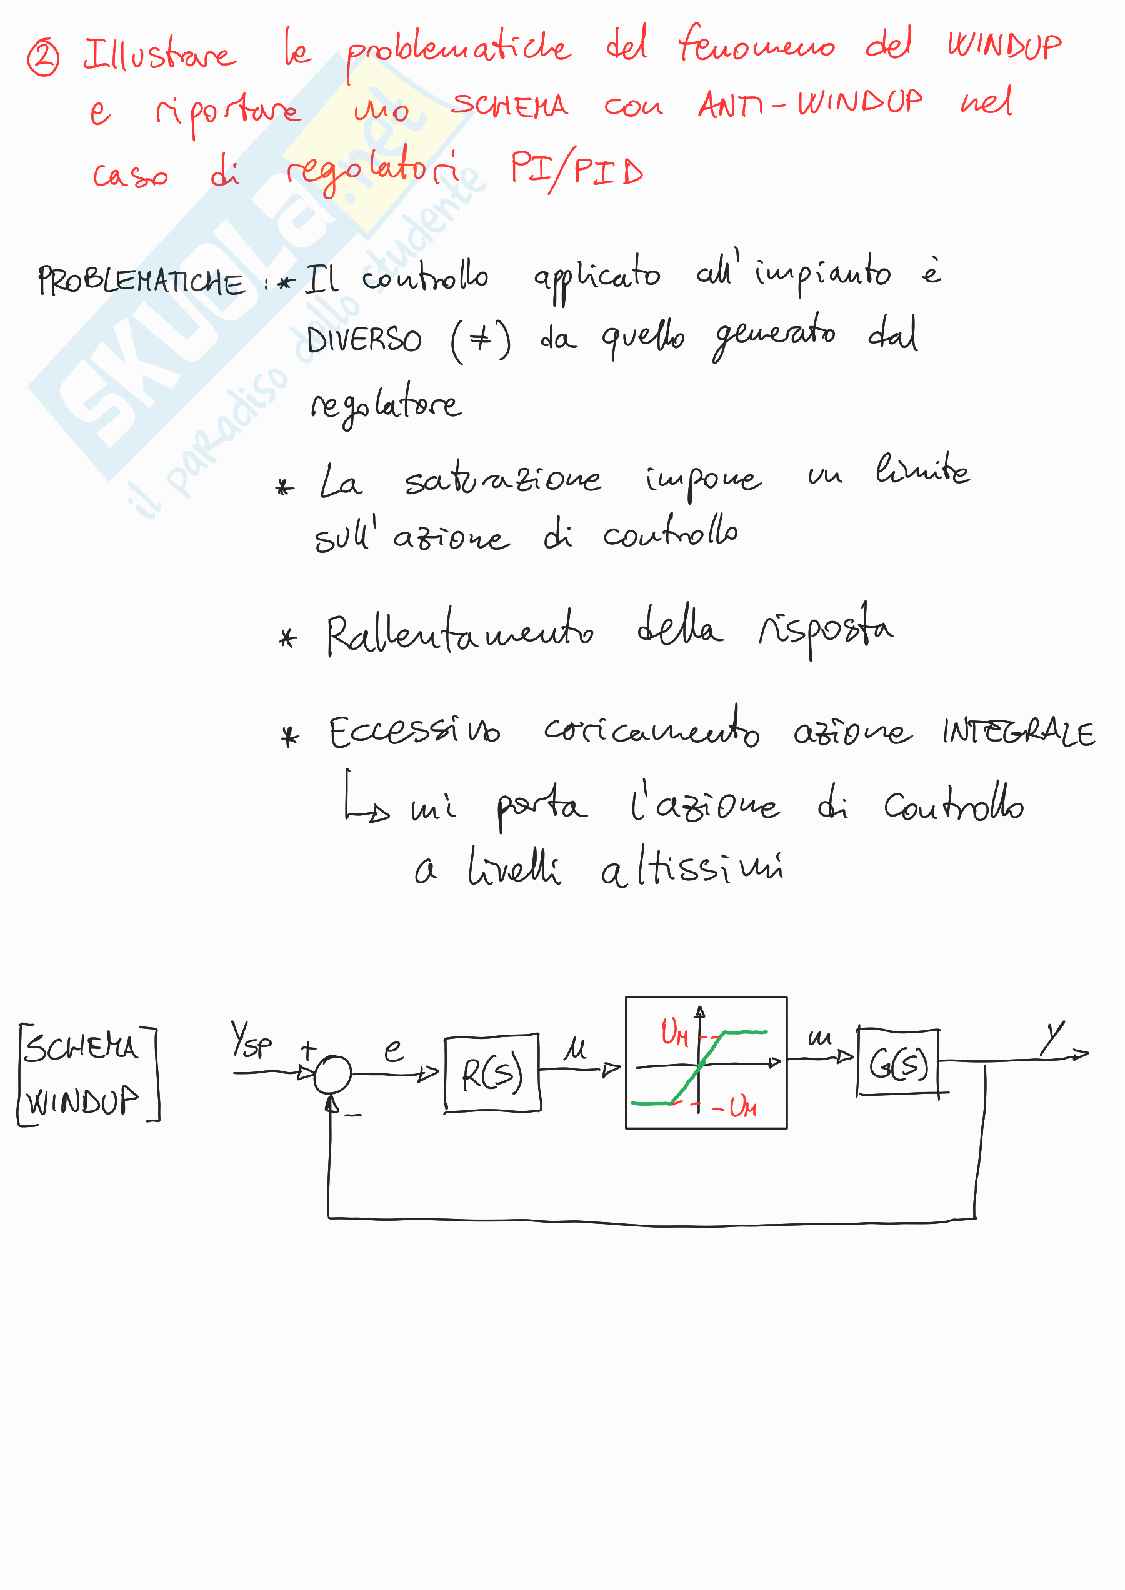 ② Illustrare le problematiche del fenomeno del WINDUP
e riportare uno SCHEMA con ANTI-WINDUP nel
caso di regolatori PI/PID
PROBLEMATICHE : * Il controllo applicato all'impianto è
DIVERSO (≠) da quello generato dal
regolatore
* La saturazione impone un limite
sull'azione di controllo
* Rallentamento della risposta
* Eccessivo caricamento azione INTEGRALE
↳ mi porta l'azione di controllo
a livelli altissimi
[SCHEMA WINDUP]
YSP + e R(S) μ UM -UM m G(S) Y
-
SKUOLA.net
il paradiso dello studente